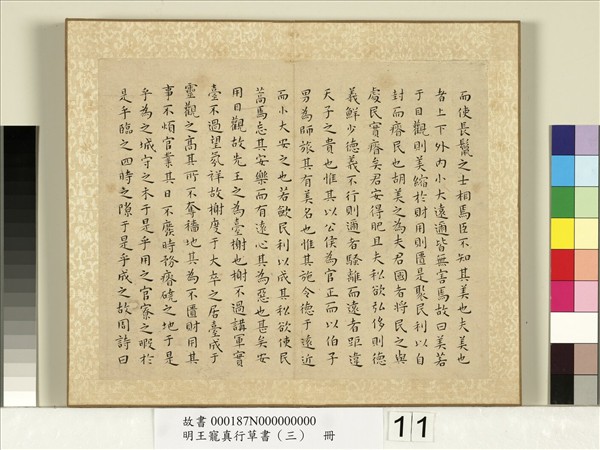 而使長鬣之士相焉臣不知其美也夫美也
者上下外內小大遠邇皆無害焉故曰美若
于目觀則美縮於財用則匱是聚民利以自
封而瘠民也胡美之為夫君國者將民之與
處民實瘠矣君安得肥且夫私欲弘侈則德
義鮮少德義不行則邇者騷離而遠者距違
天子之貴也惟其以公侯為官正而以伯子
男為師旅其有美名也惟其施令德于遠近
而小大安之也若歛民利以成其私欲使民
蒿焉忘其安樂而有遠心其為惡也甚矣安
用目觀故先王之為臺榭也榭不過講軍實
臺不過望氛祥故榭度于大卒之居臺成于
靈觀之高其所不奪穡地其為不匱財用其
事不煩官業其日不廢時務瘠磽之地于是
乎為之城守之木于是乎用之官寮之暇於
是乎臨之四時之隙于是乎成之故周詩曰
故書 000187N000000000
明王寵真行草書（三） 冊
11